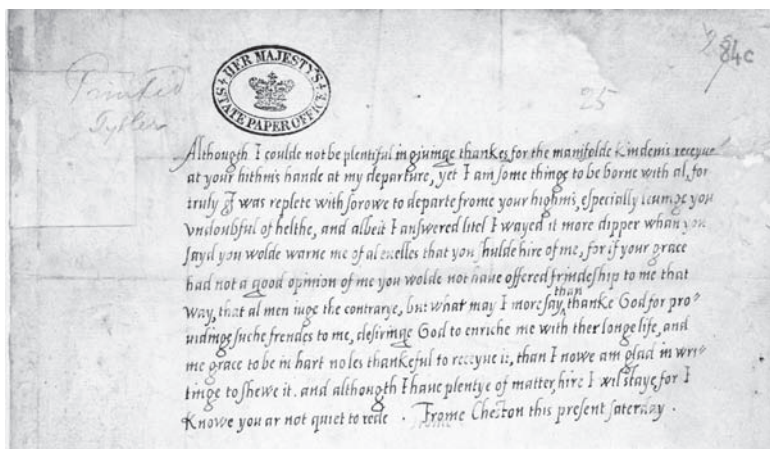 Printed
Tytler
HER MAJESTY'S
STATE PAPER OFFICE
25
84c
Although I coulde not be plentiful in giuinge thankes for the manifolde kindenis receyue
at your hithnis hande at my departure, yet I am some thinge to be borne with al, for
truly I was replete with sorowe to departe frome your highnis, especially leuinge you
vndoubful of helthe, and albeit I answered litel I wayed it more dipper whan you
sayd you wolde warne me of al euelles that you shulde hire of me, for if your grace
had not a good opinion of me you wolde not haue offered frindeship to me that
way, that al men iuge the contrarye, but what may I more say than thanke God for pro
uidinge suche frendes to me, desiringe God to enriche me with ther longe life, and
me grace to be in hart no les thankeful to receyue it, than I nowe am glad in wri
tinge to shewe it. and although I haue plentye of matter, hire I wil staye, for I
Knowe you ar not quiet to rede. Frome Cheston this present saterday.